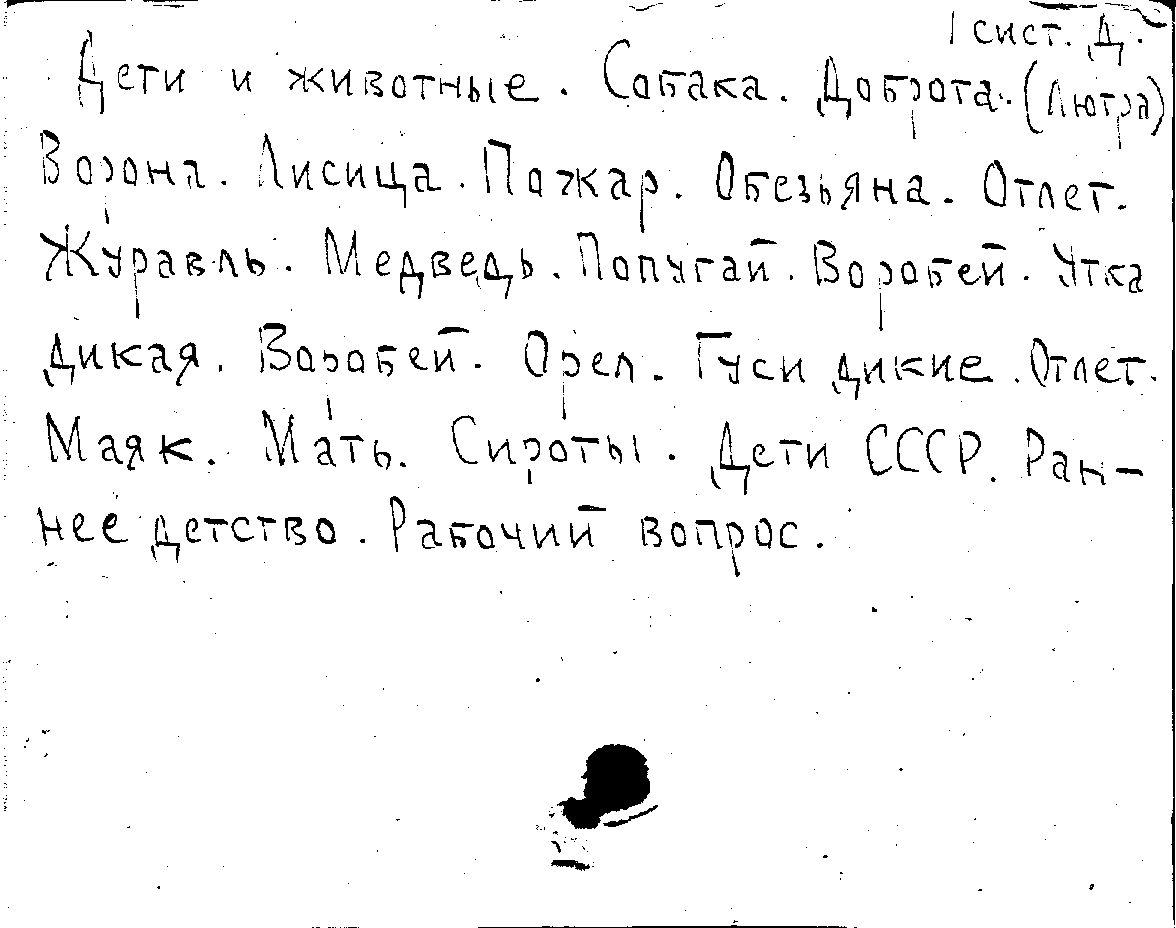 1 сист. Д.
Дети и животные. Собака. Доброта. (Лютра)
Ворона. Лисица. Пожар. Обезьяна. Отлет.
Журавль. Медведь. Попугай. Воробей. Утка
дикая. Воробей. Орел. Гуси дикие. Отлет.
Маяк. Мать. Сироты. Дети СССР. Ран-
нее детство. Рабочий вопрос.